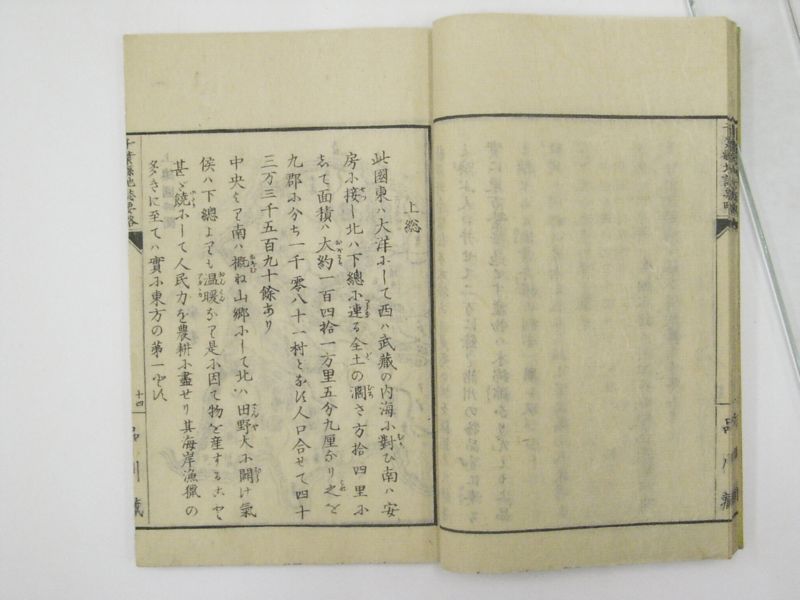 上総
此國東ハ大洋ふして西ハ武蔵の内海小對ひ南ハ安
房小接し北ハ下總小連る全土の濶さ方拾四里小
志て面積ハ大約一百四拾一方里五分九厘なり之を
九郡小分ち一千零八十一村となす人口合せて四十
三万三千五百九十餘あり
中央より南ハ概ね山郷小して北ハ田野大小開け氣
候ハ下總よりも温暖なり是小因て物を産すること
甚だ饒小して人民力を農耕小盡せり其海岸漁獵の
多きに至てハ實小東方の第一とす
千葉縣地誌要略
十四
品川藏
千葉縣地誌要略
品川藏